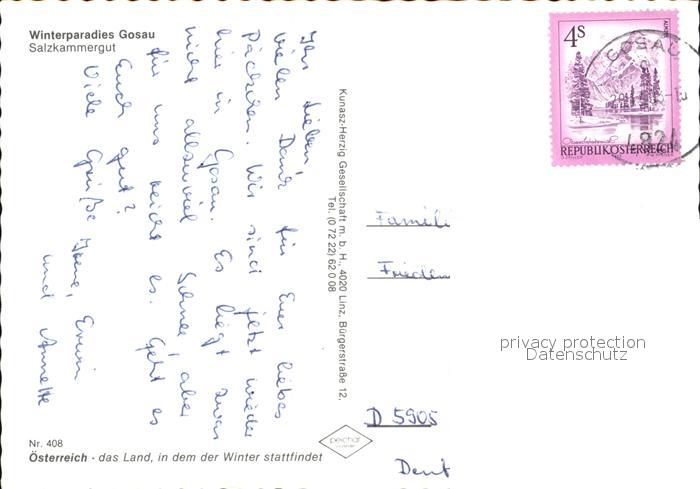 Winterparadies Gosau
Salzkammergut
Ihr Lieben!
vielen Dank für Euer liebes
Päckchen. Wir sind jetzt wieder
hier in Gosau. Es liegt zwar
nicht allzuviel Schnee, aber
für uns reicht es. Geht es
Euch gut?
Viele Grüße Irene, Erwin
und Annette
Nr. 408
Österreich - das Land, in dem der Winter stattfindet
Kunasz-Herzig Gesellschaft m. b. H., 4020 Linz, Bürgerstraße 12,
Tel. (0 72 22) 62 0 08
peichar
4S
REPUBLIK ÖSTERREICH
GOSAU
4824
Famili
Frieden
D 5905
Deut
privacy protection
Datenschutz